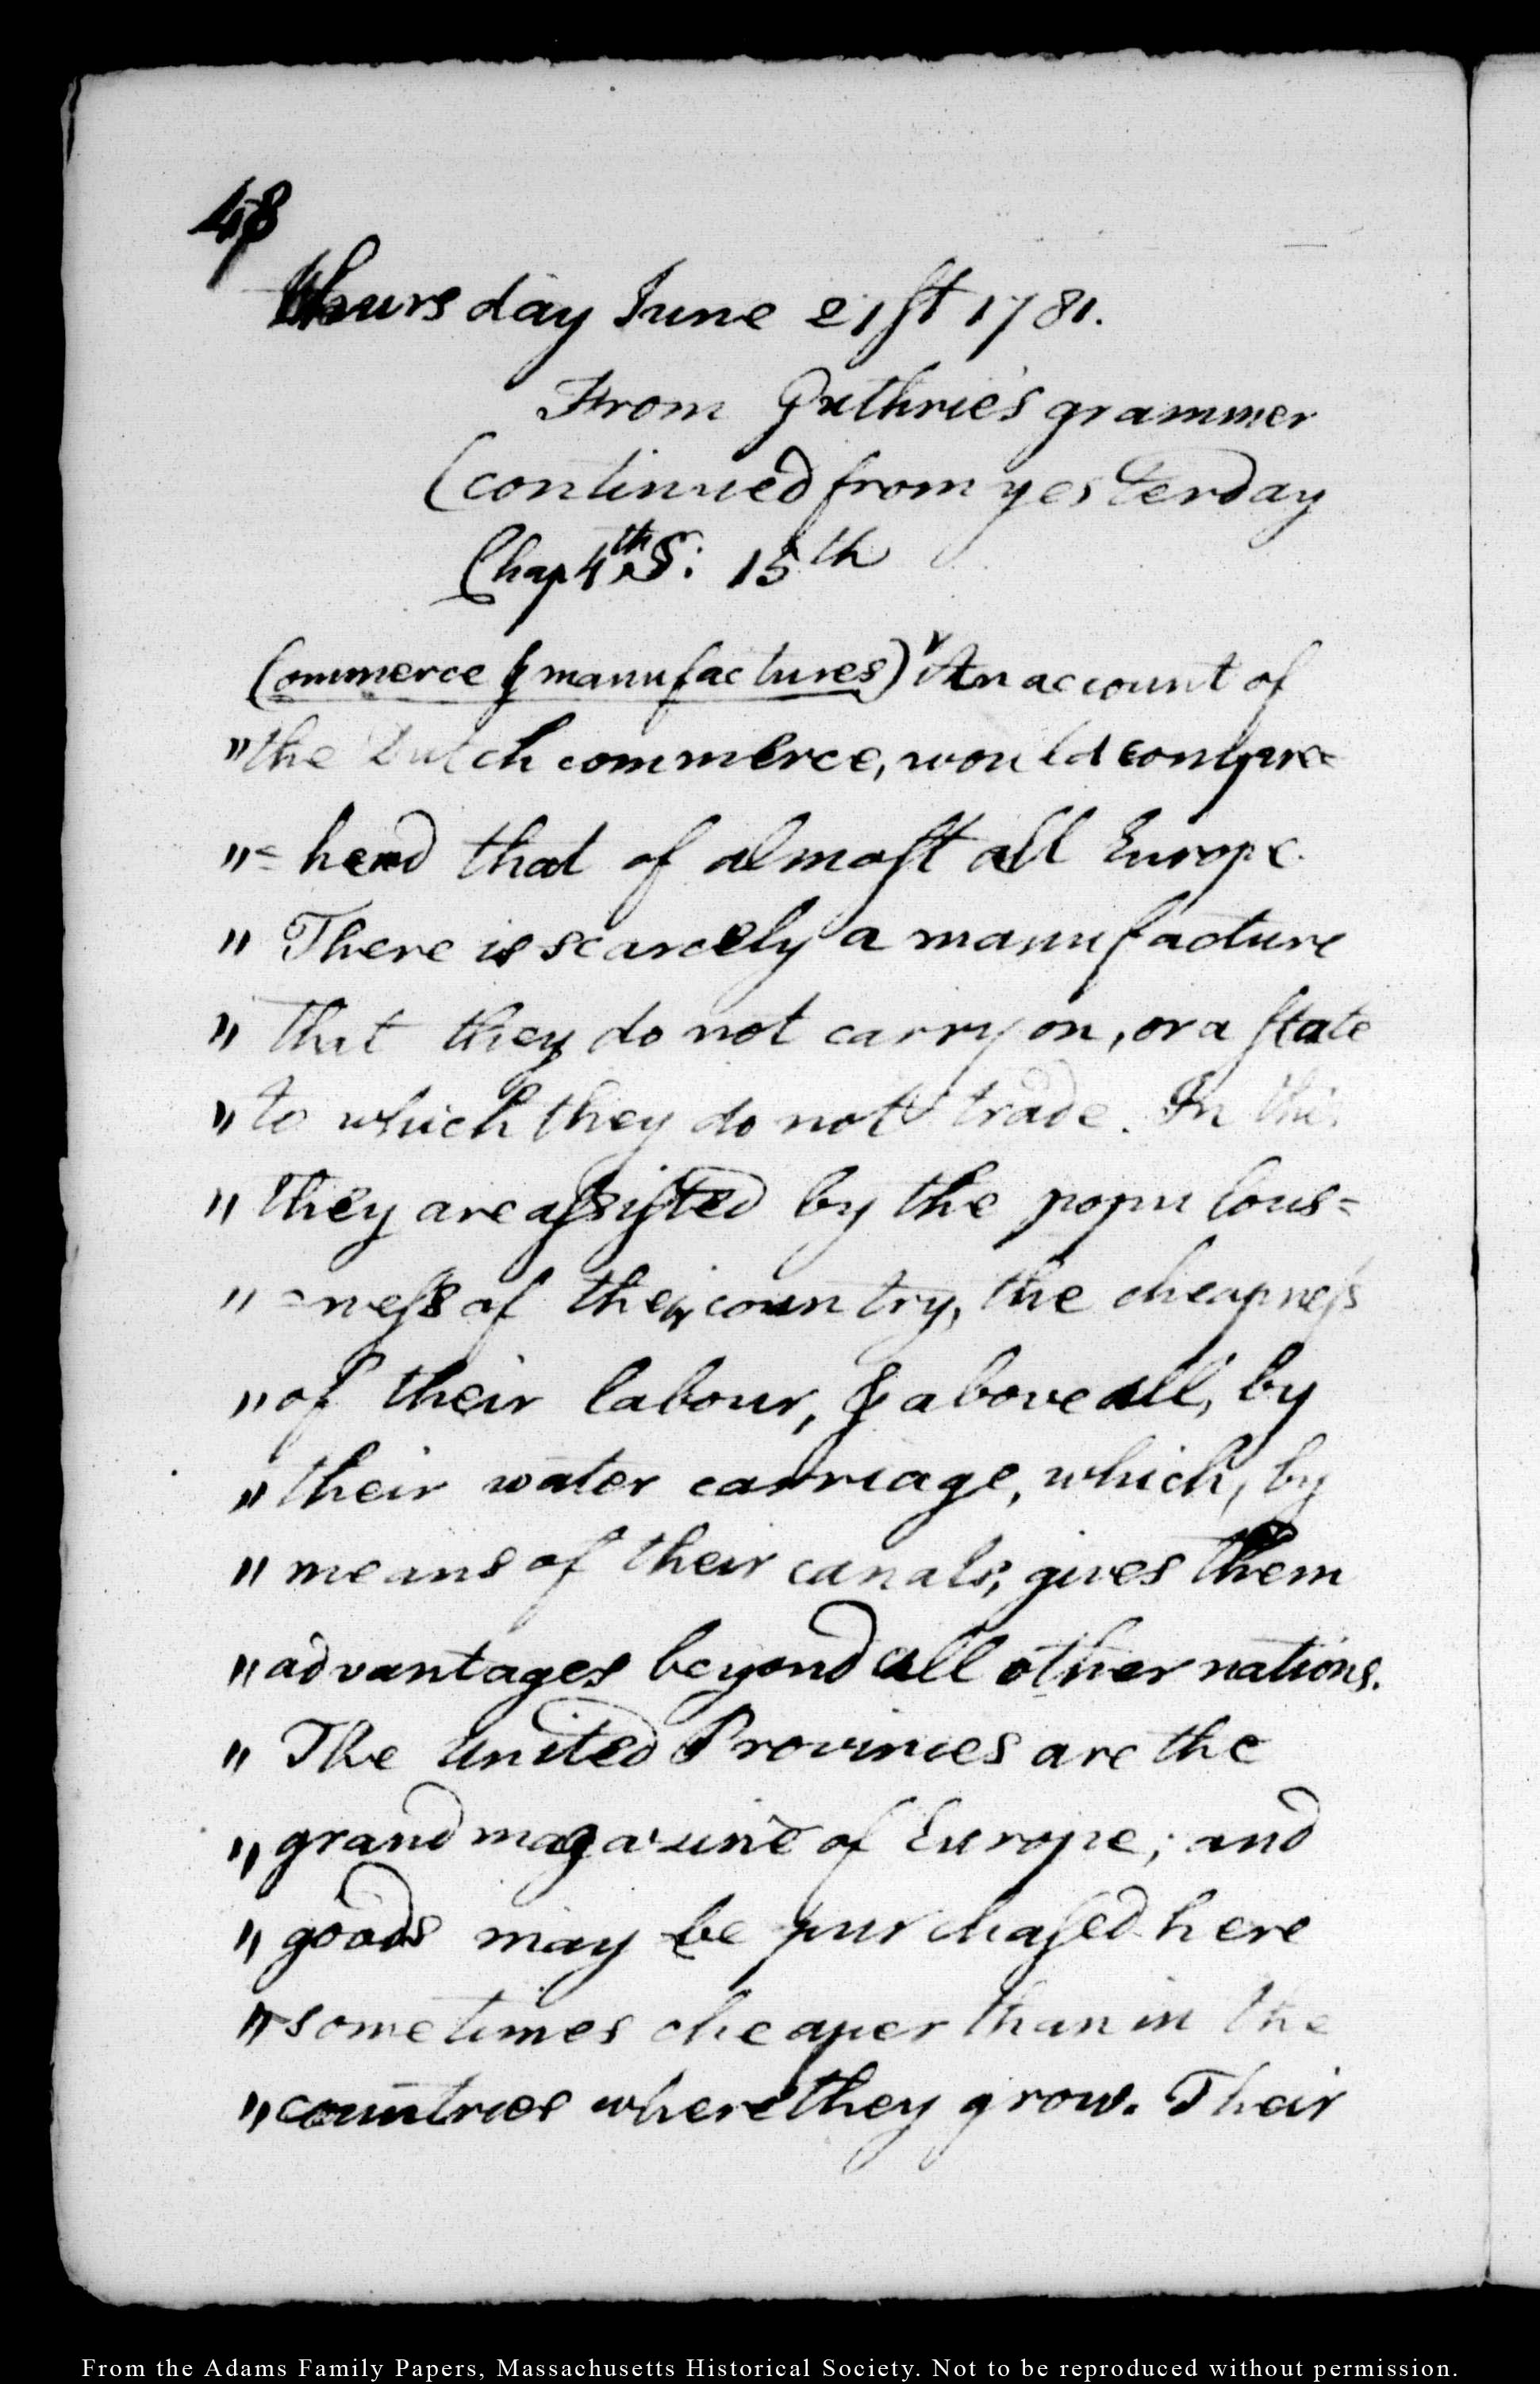 48
Thursday June 21st 1781.
From Guthrie's grammer
(continued from yesterday
Chap 4th S: 15th
(Commerce & manufactures) "An account of
"the Dutch commerce, would compre=
"=hend that of almost all Europe.
" There is scarcely a manufacture
" that they do not carry on, or a state
" to which they do not trade. In this
" they are assisted by the populous=
" =ness of their country, the cheapness
" of their labour, & above all, by
" their water carriage, which, by
" means of their canals, gives them
" advantages beyond all other nations.
" The United Provinces are the
" grand magazine of Europe; and
" goods may be purchased here
" sometimes cheaper than in the
" countries where they grow. Their
From the Adams Family Papers, Massachusetts Historical Society. Not to be reproduced without permission.